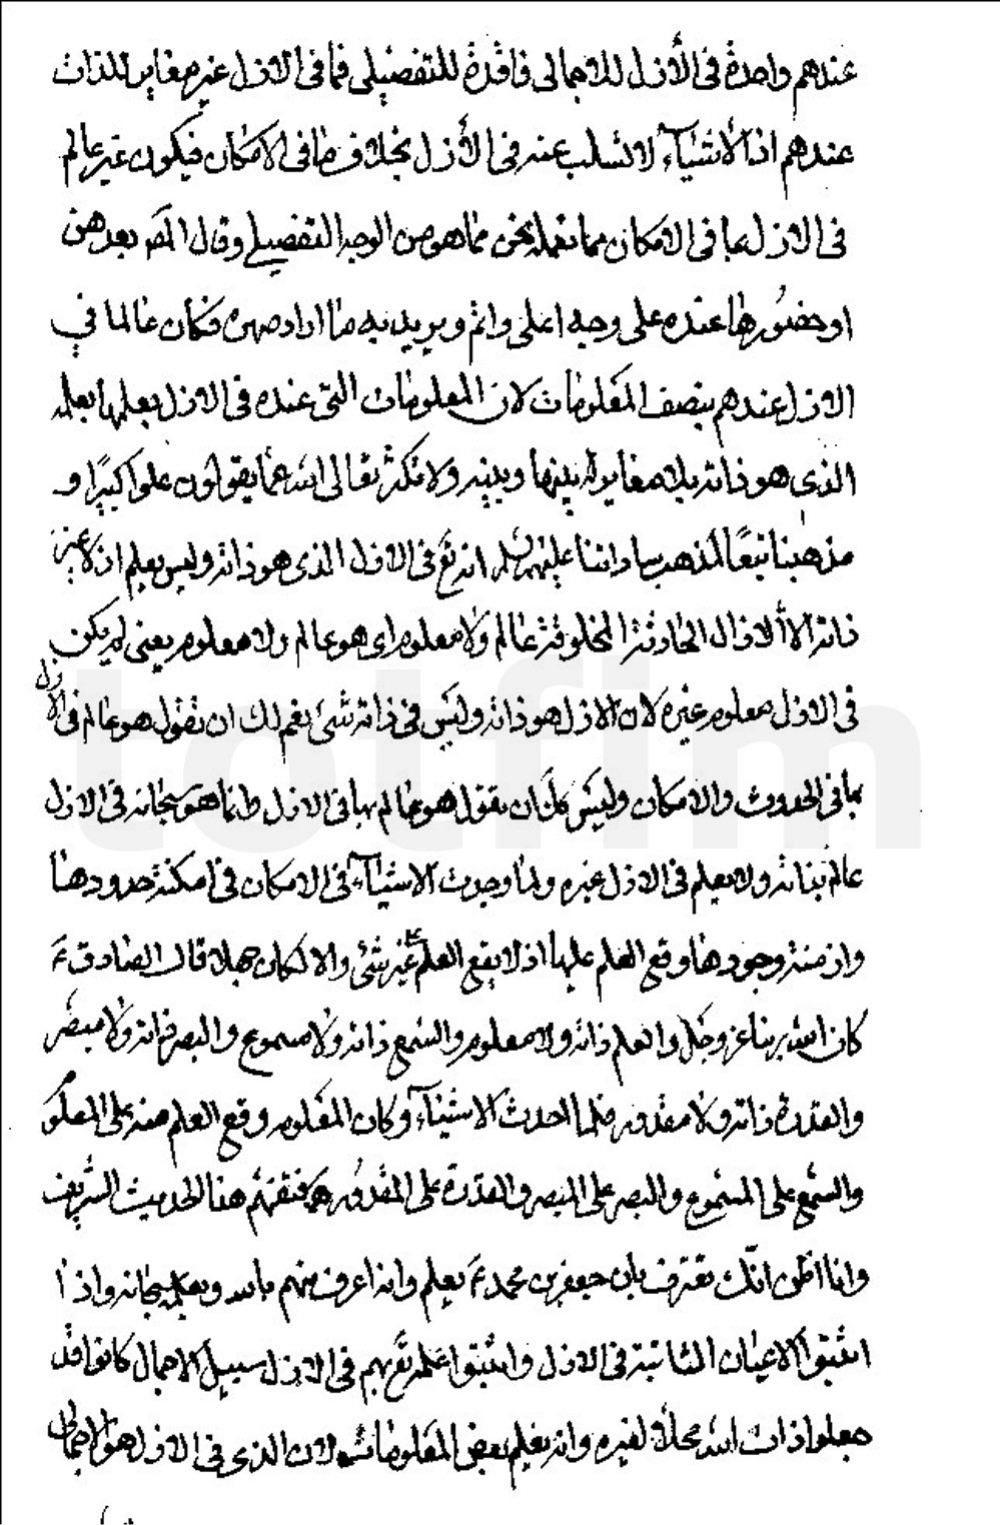 عندهم واجدة فى الأزل للاجمالى فاقدة للتفصيلى فما فى الازل غير مغاير للذات
عندهم اذ الاشيآء لا تسلب عنه فى الأزل بخلاف ما فى الامكان فيكون غير عالم
فى الازل بما فى الامكان مما نعلمه نحن مما هو من الوجه التفصيلى وقال المص بعد هذا
او حضورها عنده على وجه اعلى واتم ويريد به ما اراد صهره فكان عالما في
الازل عندهم بنصف المعلومات لان المعلومات التى عنده فى الازل يعلمها بعلمه
الذى هو ذاته بلا مغايرة بينها وبينه ولا تكثر تعالى الله عما يقولون علوا كبيرًا و
مذهبنا تبعًا لمذهب ساداتنا عليهم انه تع فى الازل الذى هو ذاته وليس يعلم اذ لا غير
ذاته الا الازال الحادثة المخلوقة عالم ولا معلوم اى هو عالم ولا معلوم يعنى لم يكن
فى الازل معلوم غيره لان الازل هو ذاته وليس فى ذاته شئ نعم لك ان تقول هو عالم فى الازل
بما فى الحدوث والامكان وليس لك ان تقول هو عالم بها فى الازل وانما هو سبحانه فى الازل
عالم بذاته ولا يعلم فى الازل غيره ولما وجدت الاشيآء فى الامكان فى امكنة حدودها
وازمنة وجودها وقع العلم عليها اذ لا يقع العلم على غير شئ والا لكان جهلا قال الصادق ع
كان الله ربنا عز وجل والعلم ذاته ولا معلوم والسمع ذاته ولا مسموع والبصر ذاته ولا مبصر
والقدرة ذاته ولا مقدور فلما احدث الاشيآء وكان المعلوم وقع العلم منه على المعلوم
والسمع على المسموع والبصر على المبصر والقدرة على المقدور فتفهم هذا الحديث الشريف
وانا اظن انك تعترف بان جعفر بن محمد ع يعلم وانه اعرف منهم بالله وبعلمه سبحانه واذا
اثبتوا الاعيان الثابتة فى الازل واثبتوا علمه تع بهم فى الازل سبيل الاجمال كانوا قد
جعلوا ذات الله محلا لغيره وانه يعلم بعض المعلومات لان الذى فى الازل هو الاجمالى